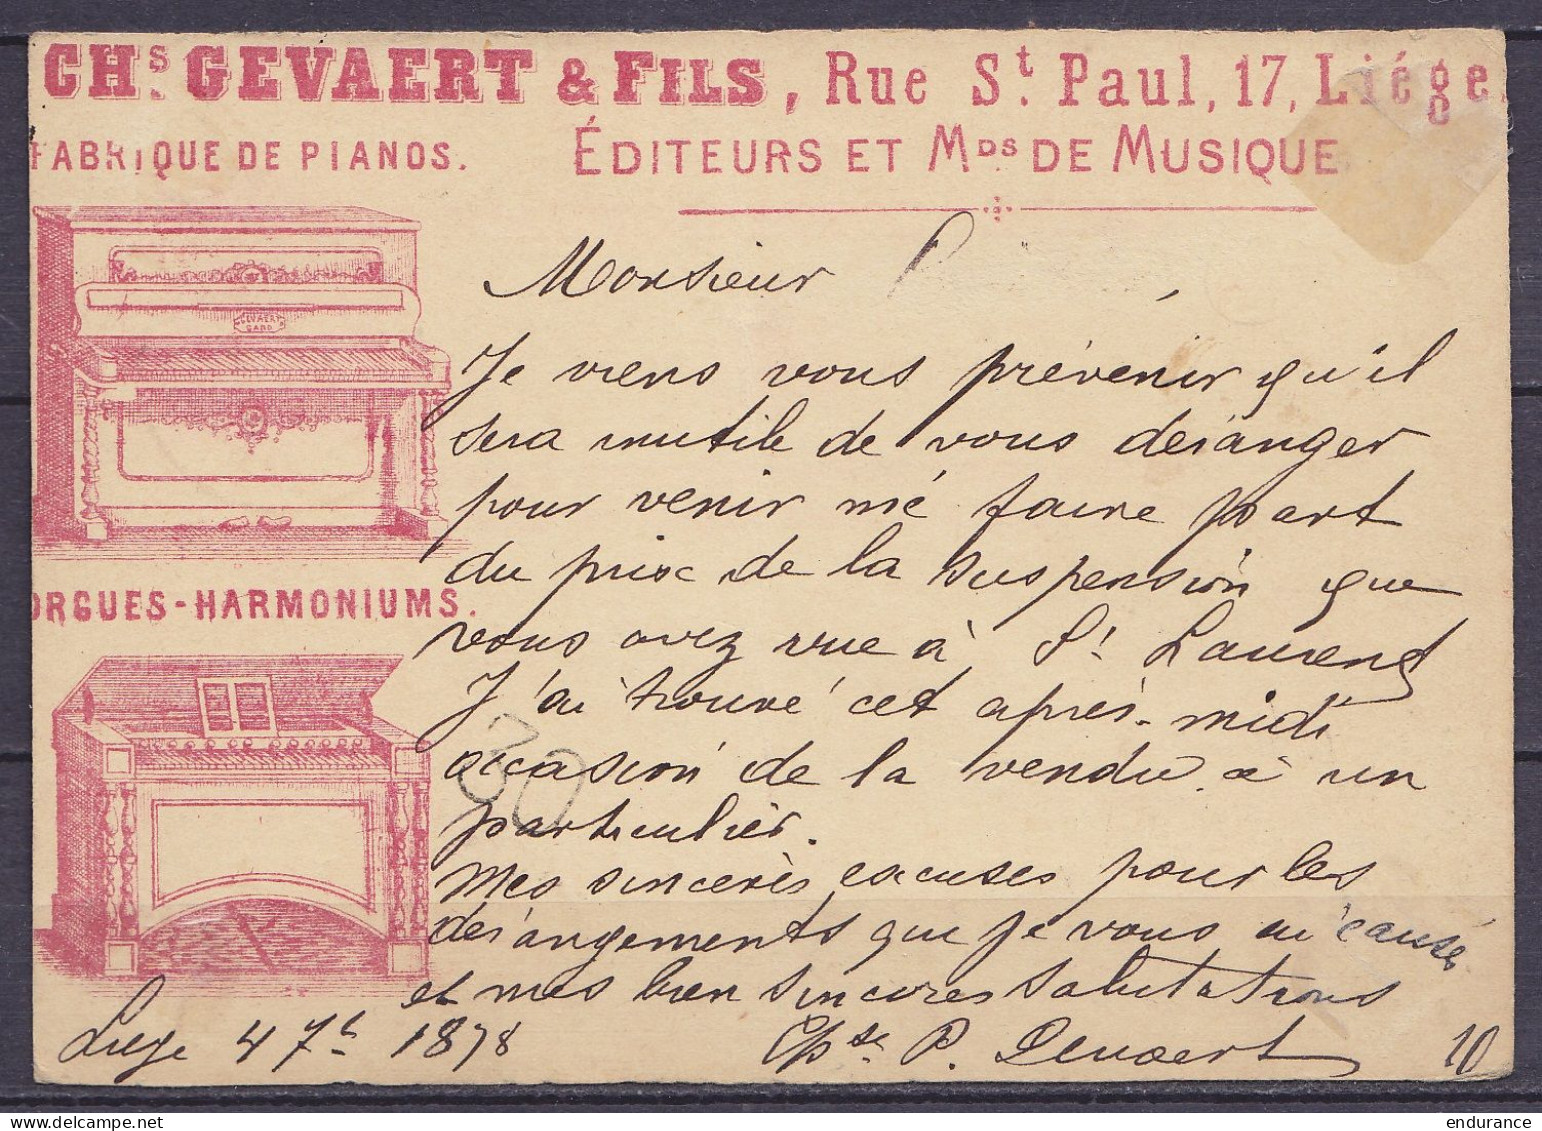 CHs. GEVAERT & FILS, Rue St. Paul, 17, Liége.
FABRIQUE DE PIANOS.
ÉDITEURS ET Mds DE MUSIQUE
GEVAERT
GAND
ORGUES-HARMONIUMS.
Monsieur
Je viens vous prévenir qu'il
sera inutile de vous déranger
pour venir mé faire part
du prix de la suspension que
vous avez vue à St Laurent
J'ai trouvé cet après-midi
occasion de la vendre à un
particulier.
Mes sincerès excuses pour les
dérangements que je vous ai causés
et mes bien sinceres salutations
Liege 4 7b 1878
P. Gevaert
10
30
endurance